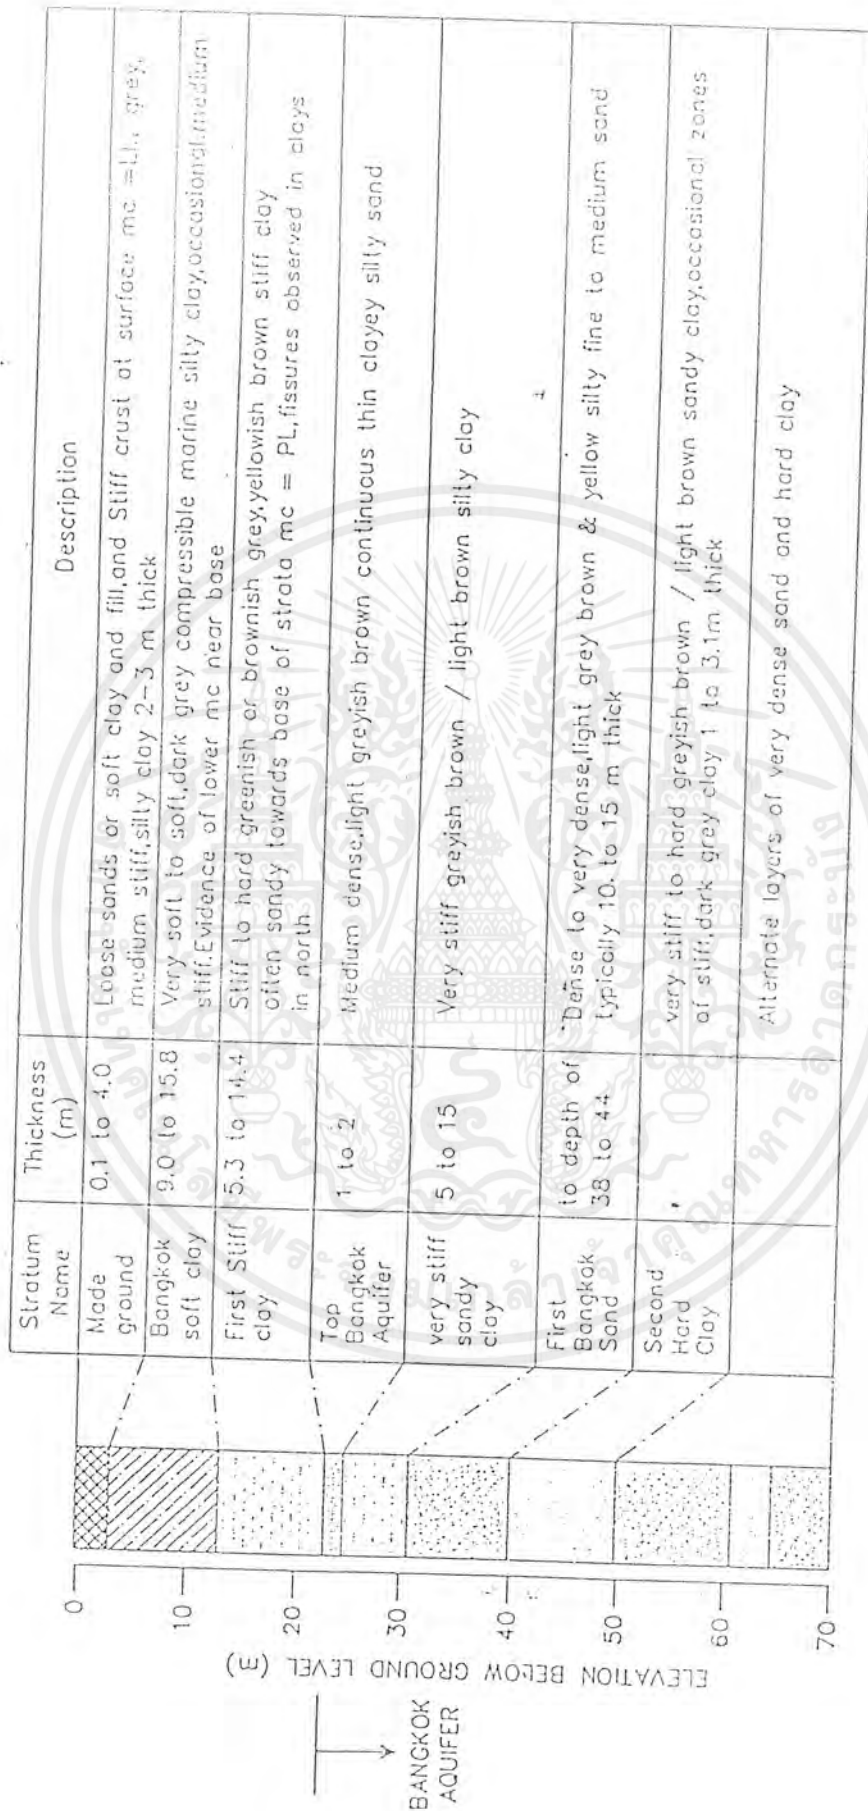 Stratum Name
Thickness (m)
Description
Made ground
0.1 to 4.0
Loose sands or soft clay and fill,and Stiff crust at surface mc =LL, grey,
medium stiff,silty clay 2-3 m thick
Bangkok soft clay
9.0 to 15.8
Very soft to soft,dark grey compressible marine silty clay,occasional medium
stiff.Evidence of lower mc near base
First Stiff clay
5.3 to 14.4
Stiff to hard greenish or brownish grey,yellowish brown stiff clay
often sandy towards base of strata mc = PL,fissures observed in clays
in north.
Top Bangkok Aquifer
1 to 2
Medium dense,light greyish brown continuous thin clayey silty sand
very stiff sandy clay
5 to 15
Very stiff greyish brown / light brown silty clay
First Bangkok Sand
to depth of 38 to 44
Dense to very dense,light grey brown & yellow silty fine to medium sand
typically 10. to 15 m thick
Second Hard Clay
very stiff to hard greyish brown / light brown sandy clay,occasional zones
of stiff,dark grey clay 1 to 3.1m thick
Alternate layers of very dense sand and hard clay
0
10
20
30
40
50
60
70
ELEVATION BELOW GROUND LEVEL (m)
BANGKOK
AQUIFER